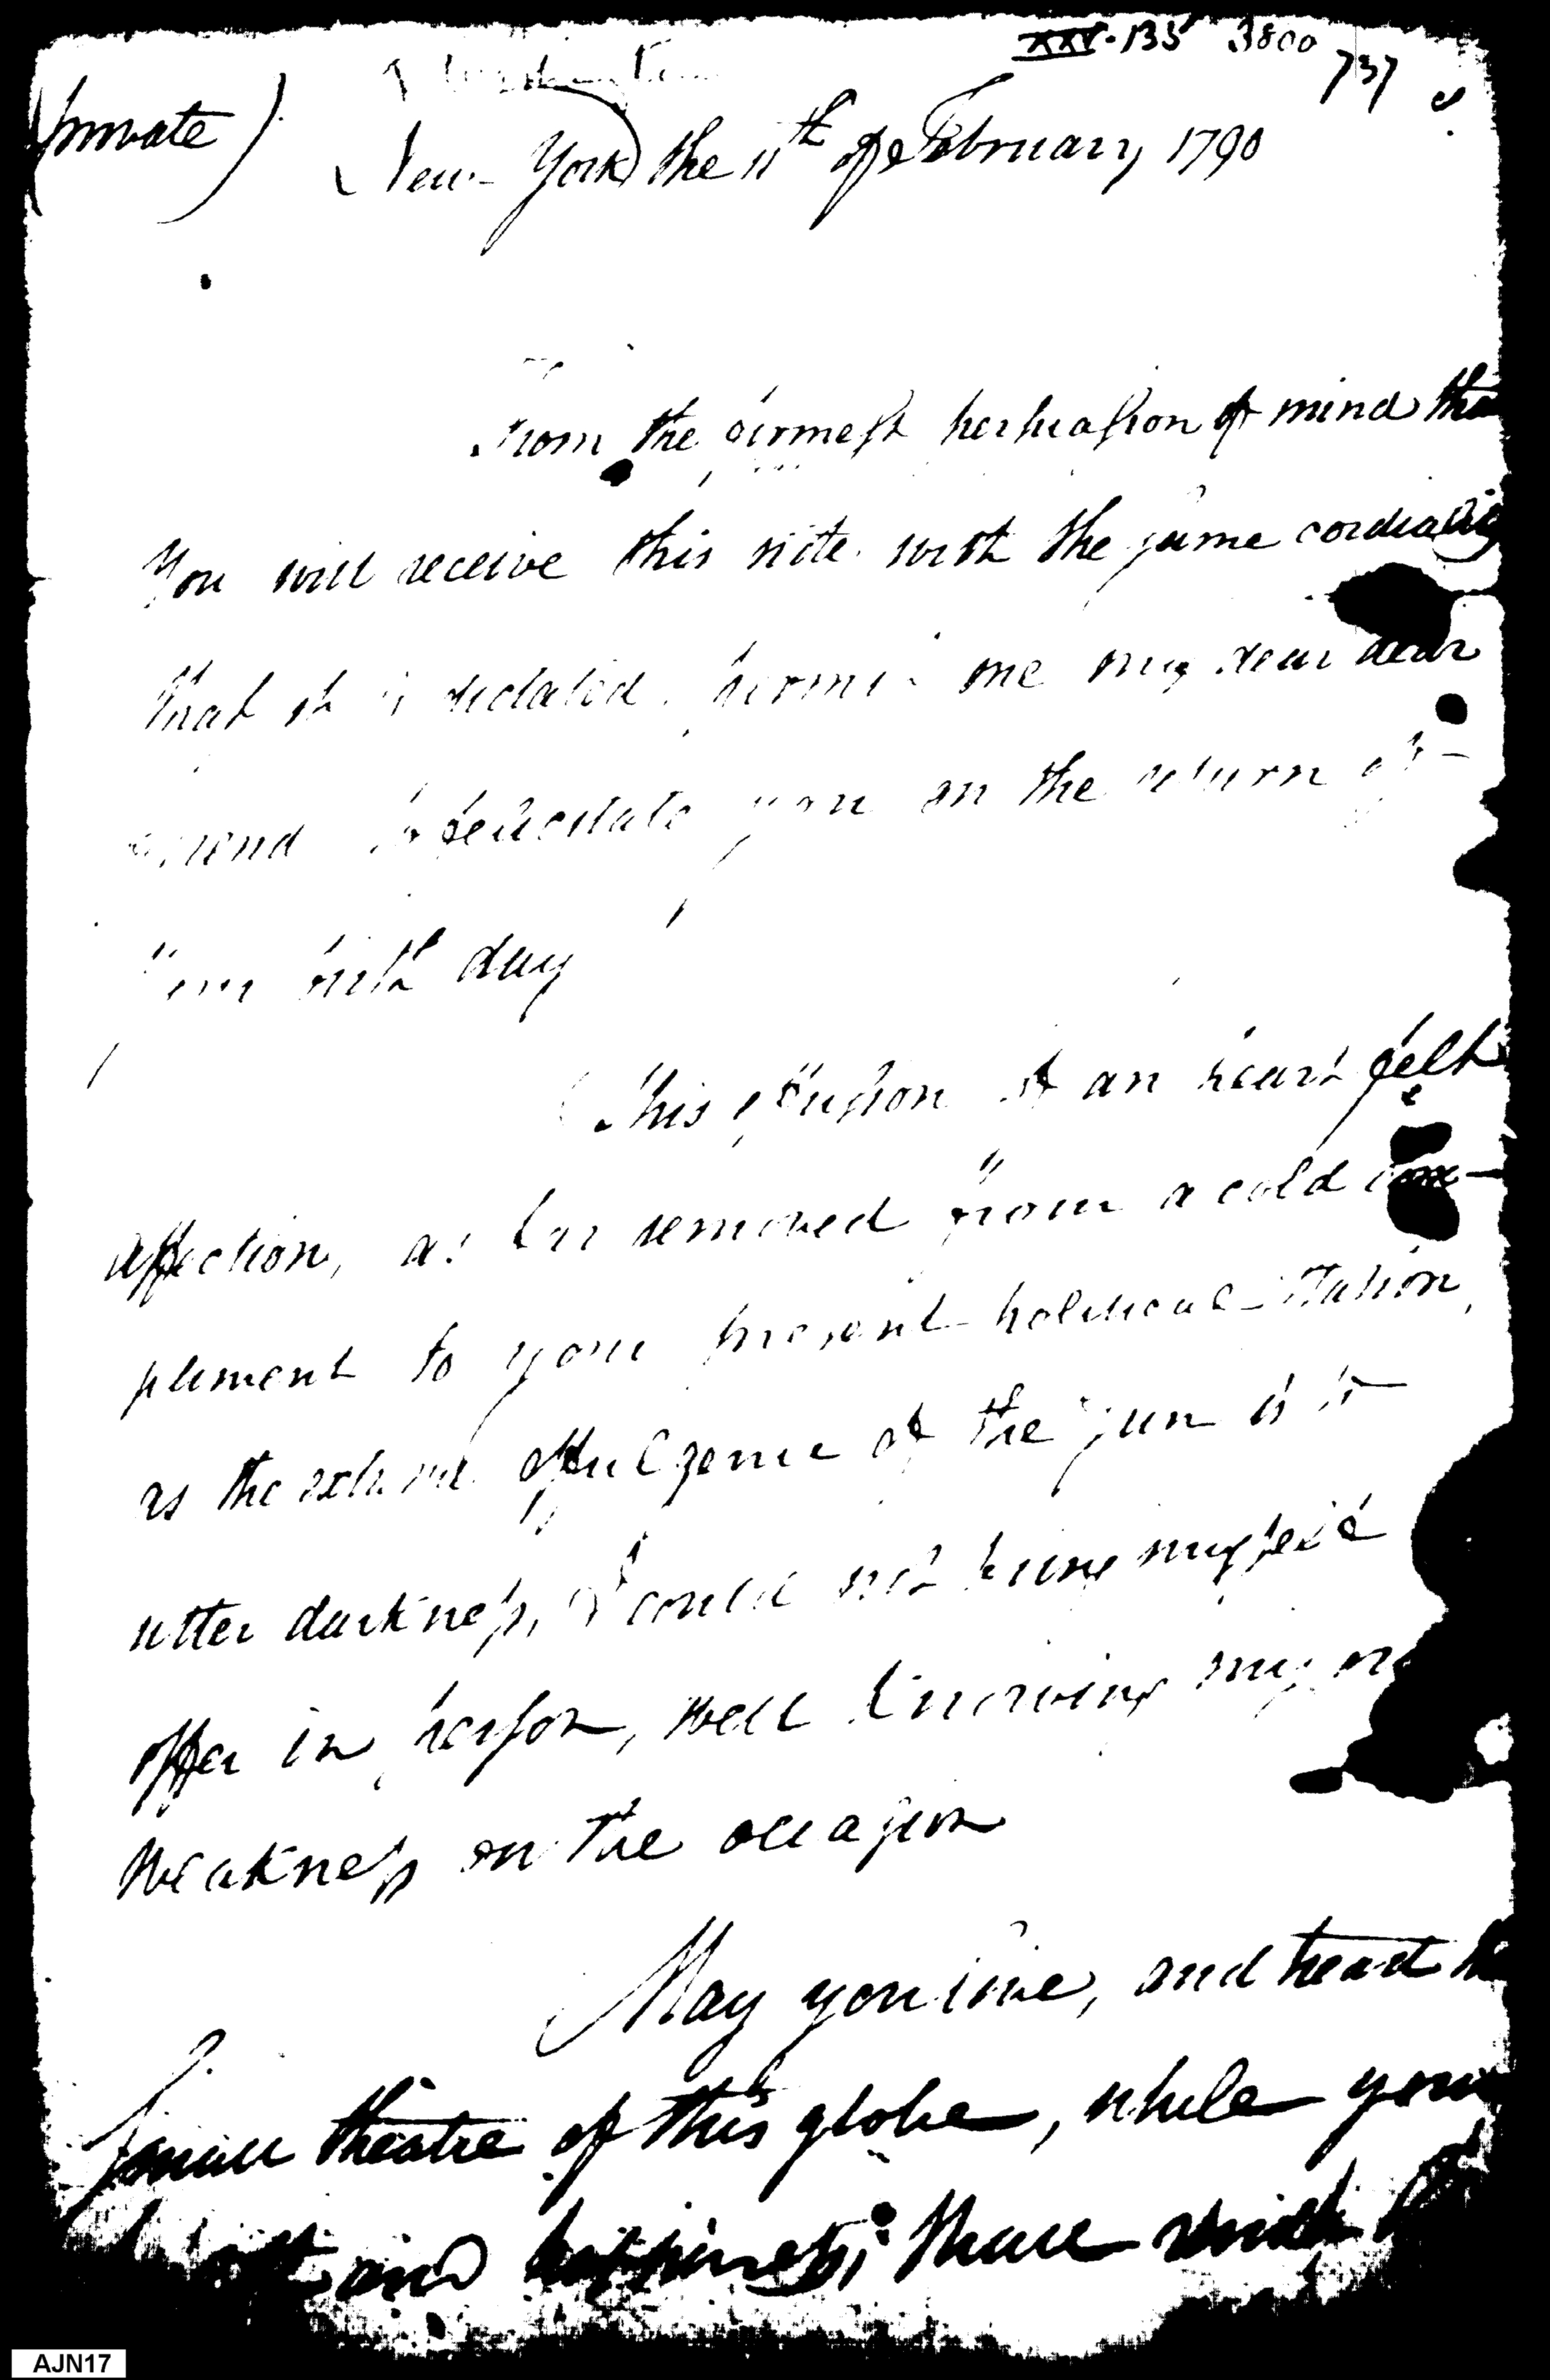 XXV-135 3800
737
(private)
New-York the 11th of February 1790
From the firmest perswasion of mind tha
you will receive this note with the same cordiality
that it is dictated, permit me my dear dear
friend to felicitate you on the return of
your birth day
This effusion of an heart felt
affection, as far removed from a cold com-
pliment to your present political station,
as the extreme effulgence of the sun is to
utter darkness, I could not bring myself to
offer in person, well knowing my own
weakness on the occasion
May you live, and tread
small theatre of this globe, while your
and happiness; shall
AJN17